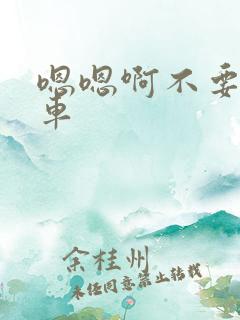 嗯嗯啊不要
車
余桂州
未经同意禁止转载